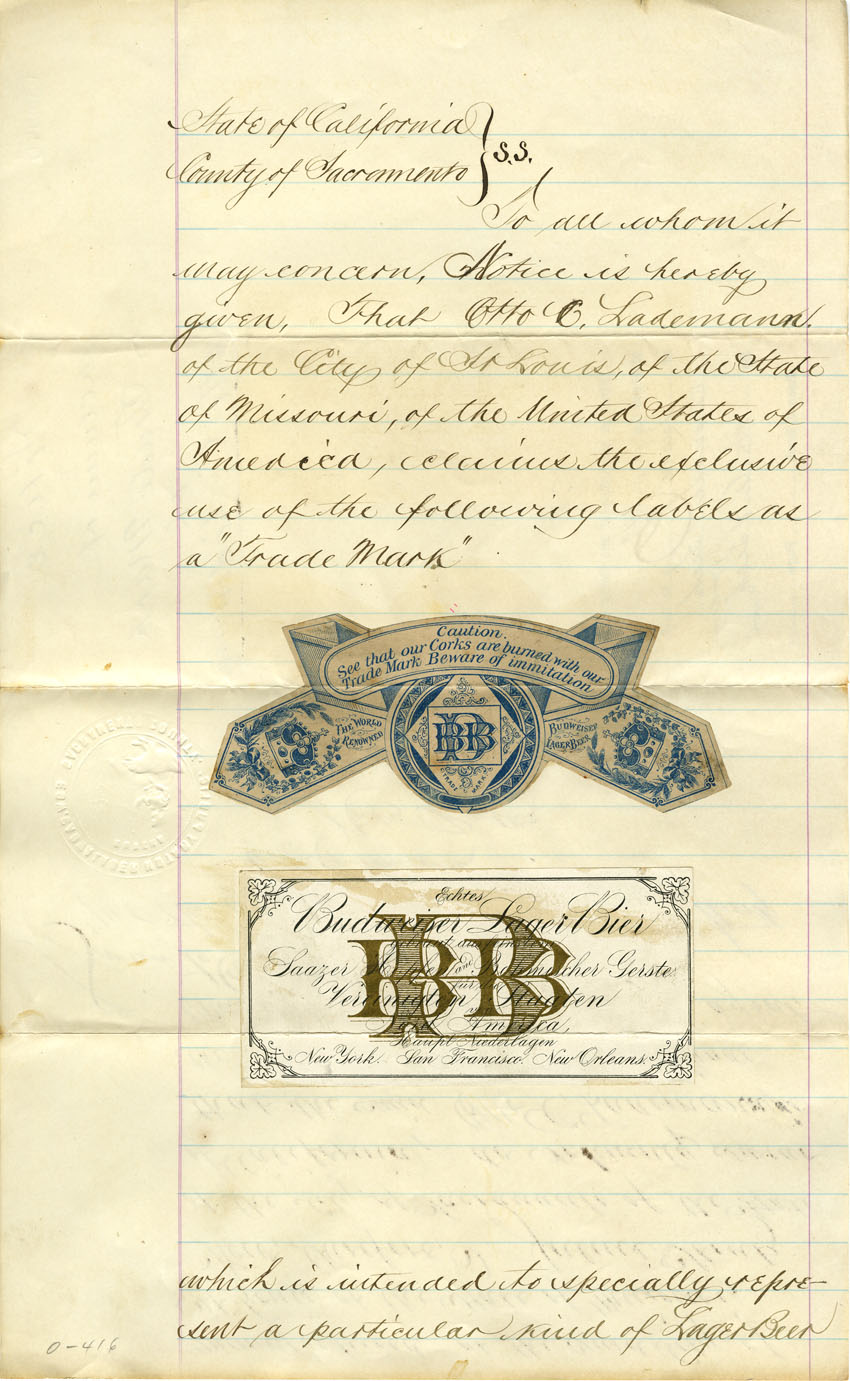 State of California
County of Sacramento } S.S.
To all whom it
may concern, Notice is hereby
given, That Otto C. Lademann.
of the City of St Louis, of the State
of Missouri, of the United States of
America, claims the exclusive
use of the following labels as
a "Trade Mark"
Caution.
See that our Corks are burned with our
Trade Mark Beware of immitation
THE WORLD
RENOWNED
BBB
TRADE MARK
BUDWEISER
LAGER BEER
Echtes
Budweiser Lager Bier
Saazer Hopfen und Boehmischer Gerste
für die
Vereinigten Staaten
von
Nord America,
Haupt Niederlagen
New York. San Francisco. New Orleans.
BBB
which is intended to specially repre-
sent a particular kind of Lager Beer
0-416